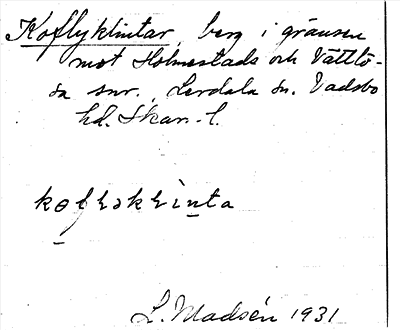 Koflyklintar, berg i gränsen
mot Holmestads och Vättlö-
sa snr., Lerdala sn. Vadsbo
hd. Skar. l.
L. Madsén 1931